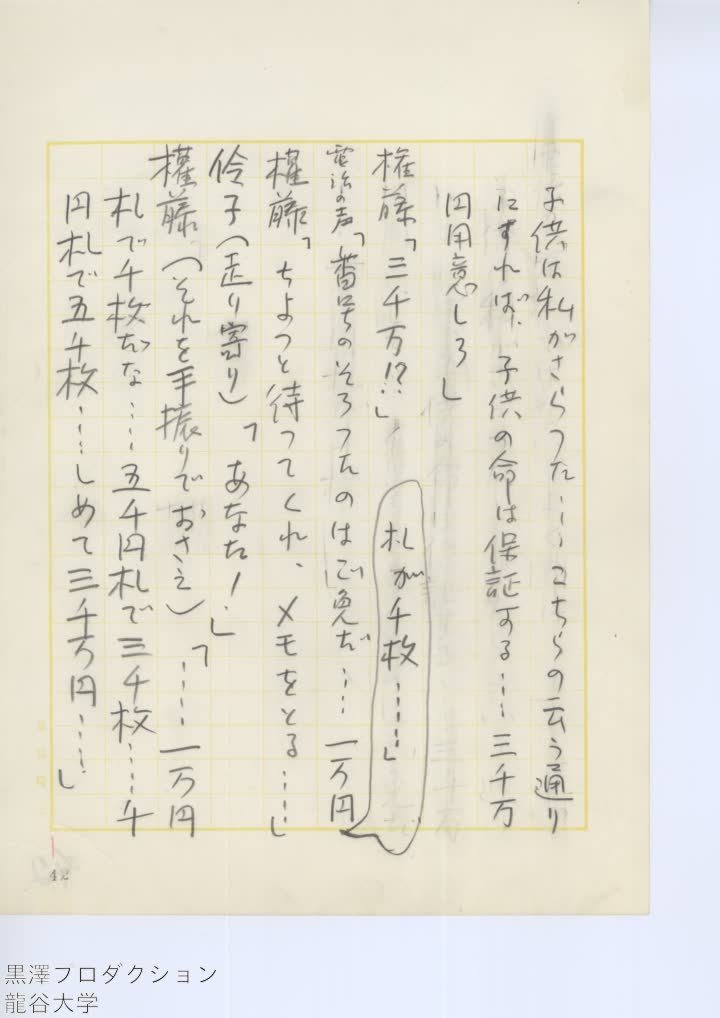 子供は私がさらつた……こちらの云う通り
にすれば、子供の命は保証する……三千万
円用意しろ」
権藤「三千万!?」
電話の声「番号のそろつたのはご免だ……一万円
札が千枚……」
権藤「ちよつと待つてくれ、メモをとる……」
伶子(走り寄り)「あなた!」
權藤(それを手振りでおさえ)「……一万円
札で千枚だな……五千円札で三千枚……千
円札で五千枚……しめて三千万円……」
42
黒澤プロダクション
龍谷大学